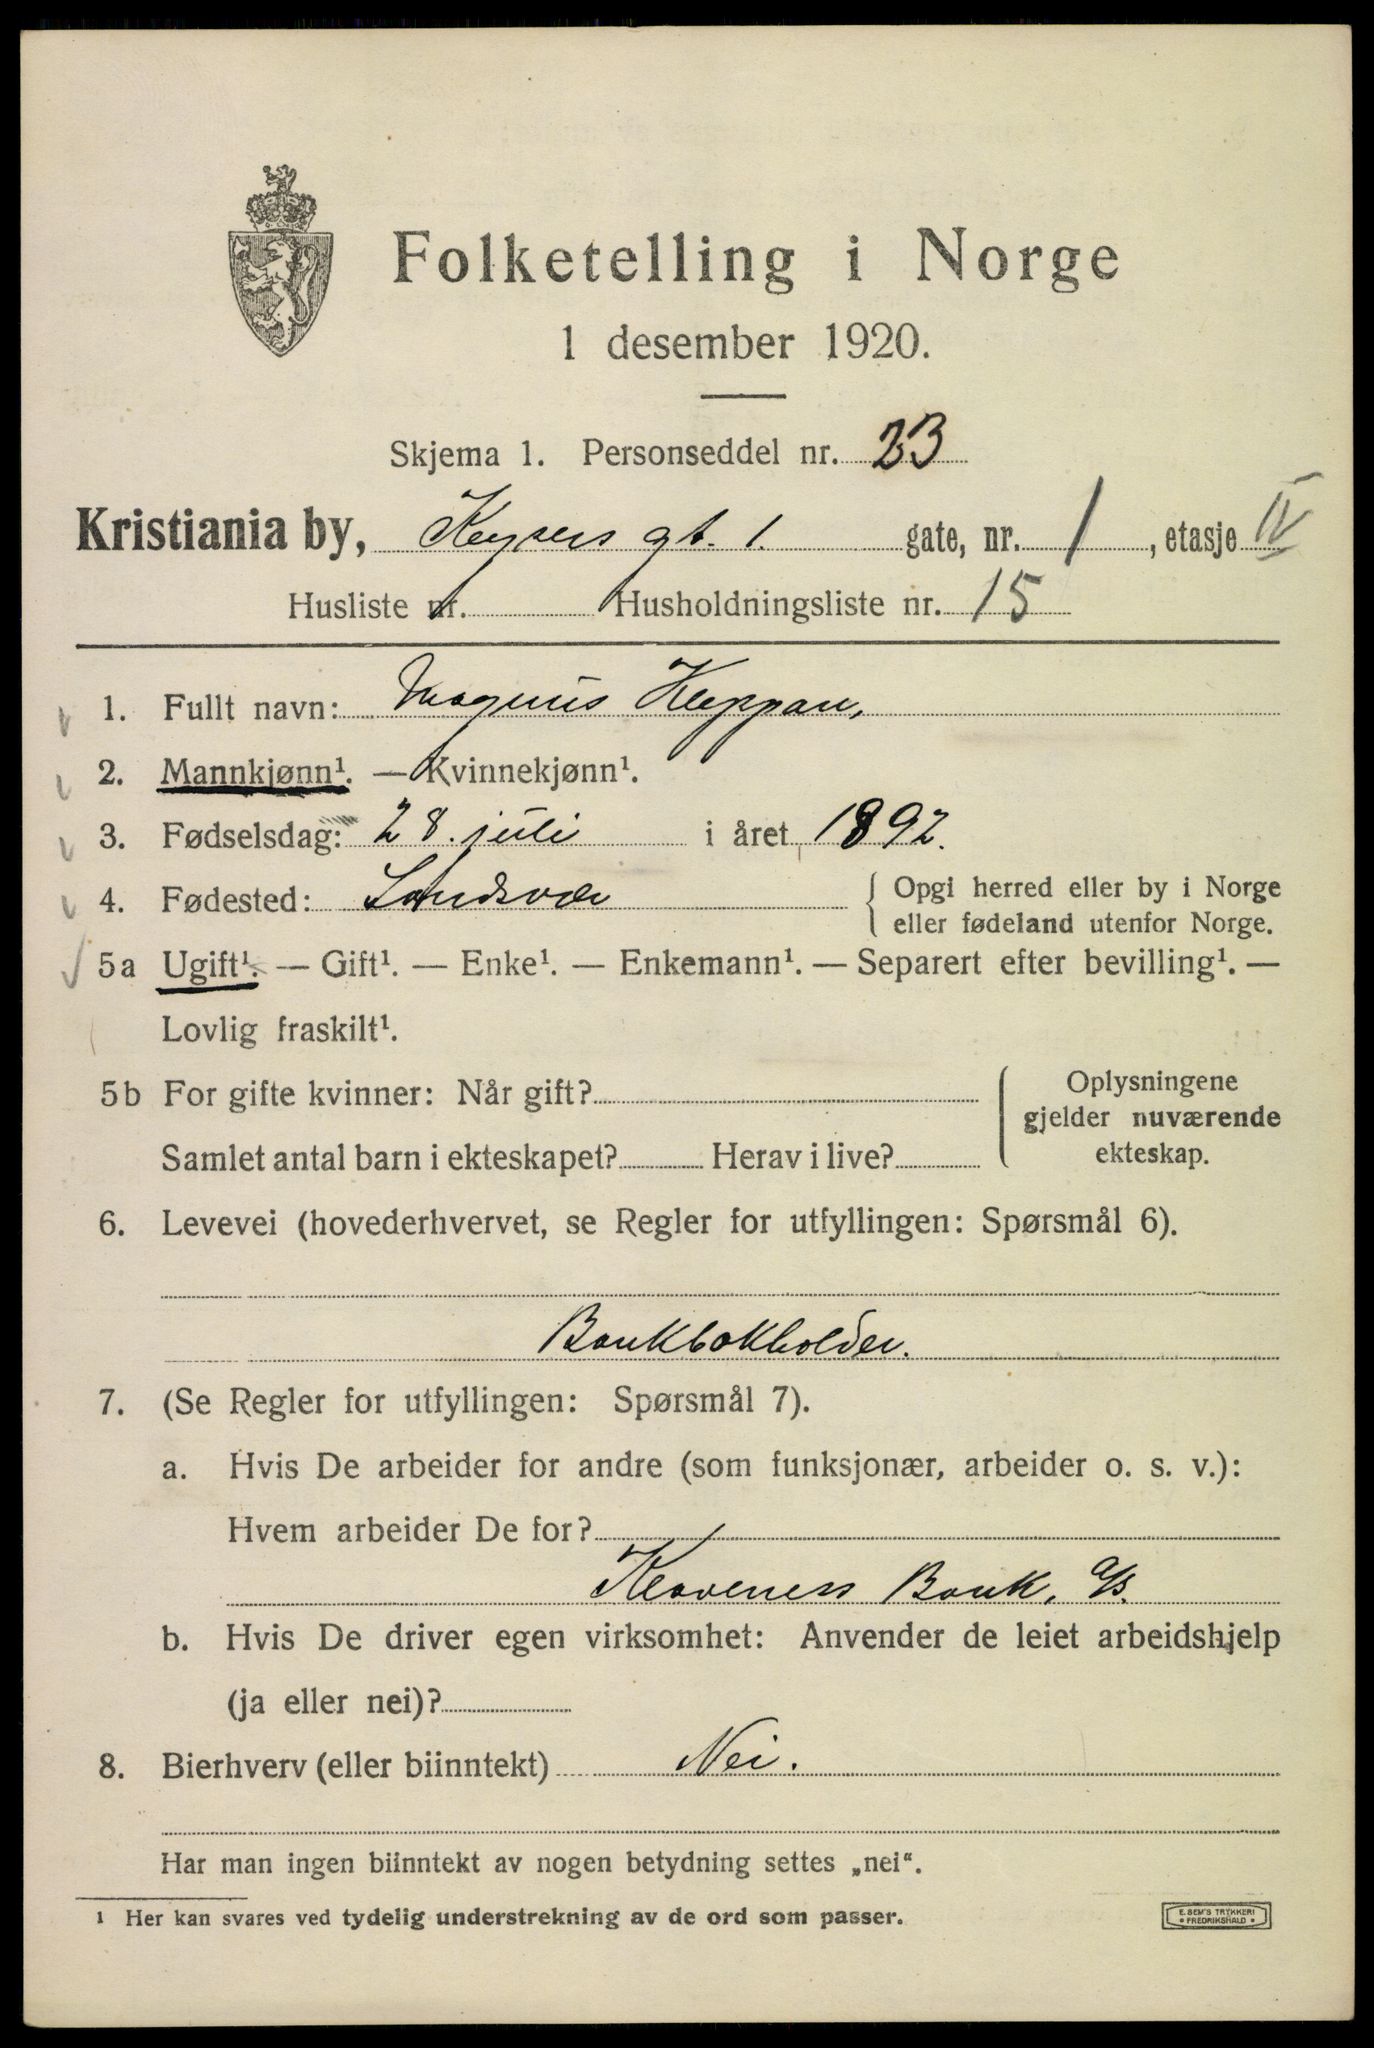 Folketelling i Norge
1 desember 1920.
Skjema 1. Personseddel nr. 23
Kristiania by, Keysers gt. 1. gate, nr. 1, etasje IV
Husliste nr. Husholdningsliste nr. 15
1. Fullt navn: Magnus Kleppan,
2. Mannkjønn¹. — Kvinnekjønn¹.
3. Fødselsdag: 28. juli i året 1892.
4. Fødested: Sandsvær { Opgi herred eller by i Norge
eller fødeland utenfor Norge.
5a Ugift¹. — Gift¹. — Enke¹. — Enkemann¹. — Separert efter bevilling¹. —
Lovlig fraskilt¹.
5b For gifte kvinner: Når gift? { Oplysningene
gjelder nuværende
Samlet antal barn i ekteskapet? Herav i live? ekteskap.
6. Levevei (hovederhvervet, se Regler for utfyllingen: Spørsmål 6).
Bankbokholder.
7. (Se Regler for utfyllingen: Spørsmål 7).
a. Hvis De arbeider for andre (som funksjonær, arbeider o. s. v.):
Hvem arbeider De for?
Klaveness Bank, A/S.
b. Hvis De driver egen virksomhet: Anvender de leiet arbeidshjelp
(ja eller nei)?
8. Bierhverv (eller biinntekt) Nei.
Har man ingen biinntekt av nogen betydning settes „nei“.
1 Her kan svares ved tydelig understrekning av de ord som passer.
E. SEM'S TRYKKERI
• FREDRIKSHALD •